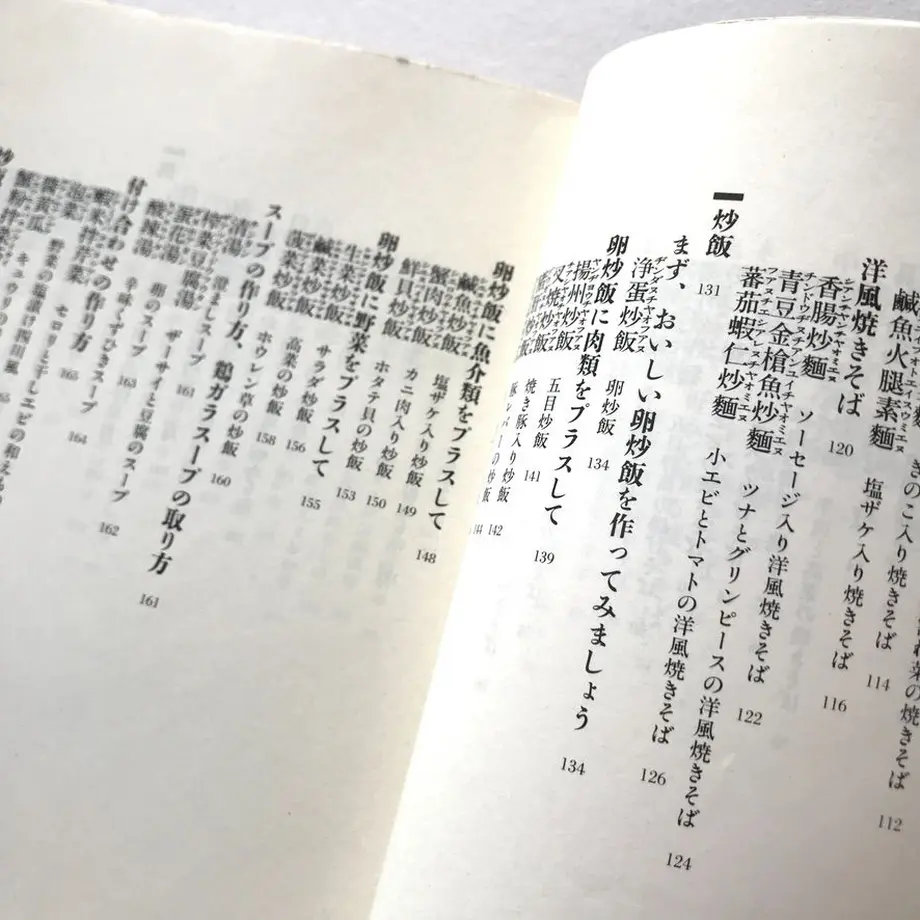 れ菜の焼きそば 112
きのこ入り焼きそば 114
鹹魚火腿素麺 塩ザケ入り焼きそば 116
洋風焼きそば 120
香腸炒麺 ソーセージ入り洋風焼きそば 122
青豆金槍魚炒麺 ツナとグリンピースの洋風焼きそば 124
蕃茄蝦仁炒麺 小エビとトマトの洋風焼きそば 126
炒飯 131
まず、おいしい卵炒飯を作ってみましょう 134
浄蛋炒飯 卵炒飯 134
卵炒飯に肉類をプラスして 139
揚州炒飯 五目炒飯 141
叉焼炒飯 焼き豚入り炒飯 142
炒飯 豚レバーの炒飯 144
卵炒飯に魚介類をプラスして 148
鹹魚炒飯 塩ザケ入り炒飯 149
蟹肉炒飯 カニ肉入り炒飯 150
鮮貝炒飯 ホタテ貝の炒飯 153
卵炒飯に野菜をプラスして 155
生菜炒飯 サラダ炒飯 156
鹹菜炒飯 高菜の炒飯 158
菠菜炒飯 ホウレン草の炒飯 160
スープの作り方、鶏ガラスープの取り方 161
清湯 澄ましスープ 161
榨菜豆腐湯 ザーサイと豆腐のスープ 162
蛋花湯 卵のスープ 163
酸辣湯 辛味くずひきスープ 164
付け合わせの作り方 165
蝦米拌芹菜 セロリと干しエビの和えもの
泡菜 野菜の塩漬け四川風
醤黄瓜 キュウリの